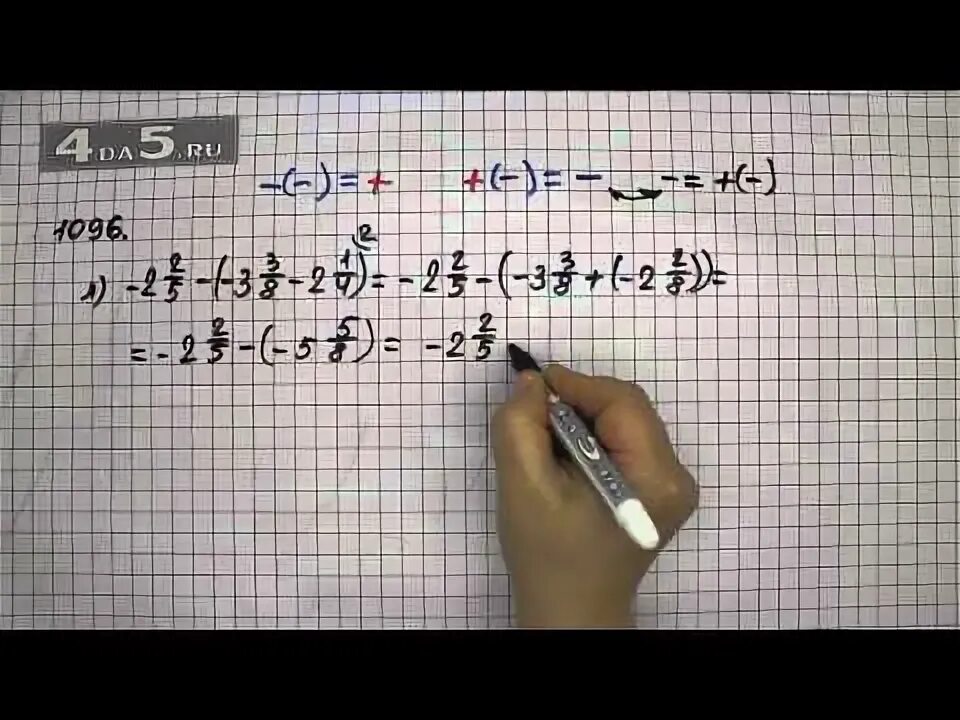 4DA5.RU
-(-)=+ +(-)=- -=+(-)
1096.
1) -2 2/5 -(-3 3/8 -2 1/4)^2 = -2 2/5 -(-3 3/8 +(-2 2/8))=
=-2 2/5 -(-5 5/8)= -2 2/5